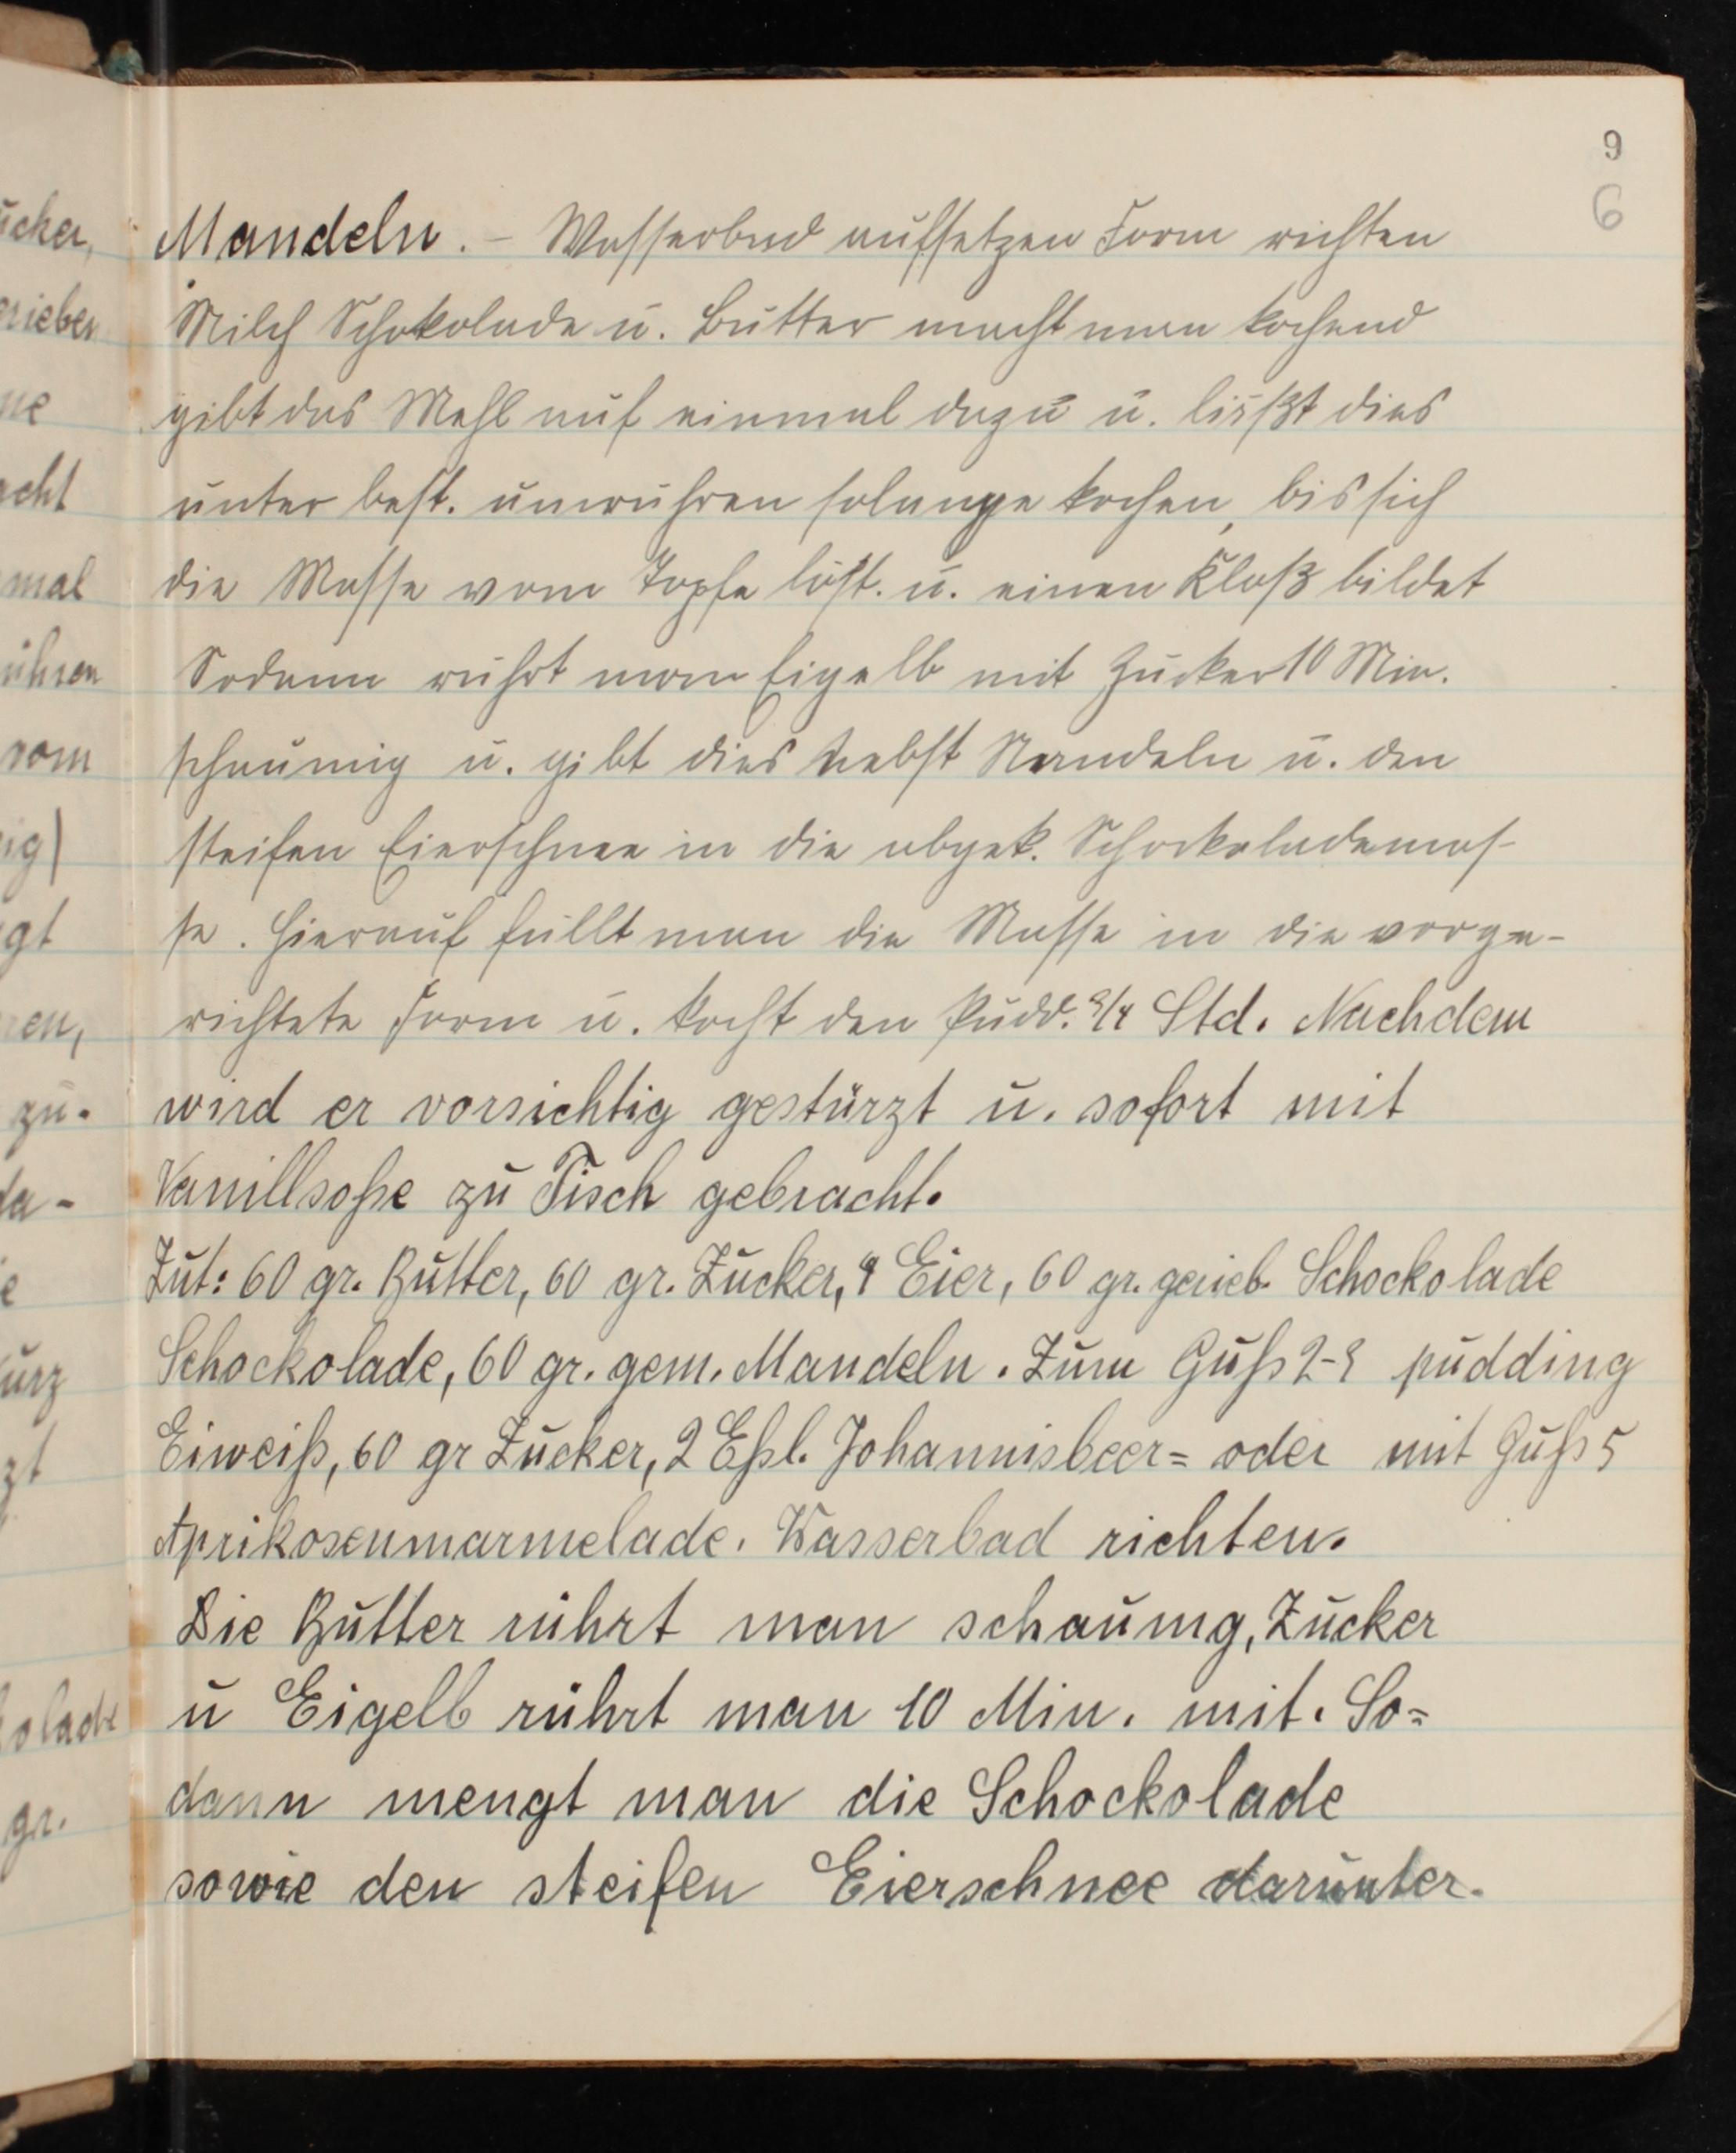 9
6
Mandeln. – Wasserbad aufsetzen Form richten
Milch Schokolade u. Butter macht man kochend
gibt das Mehl auf einmal dazu u. läßt dies
unter best. umrühren solange kochen, bis sich
die Masse vom Topfe löst. u. einen Kloß bildet
Sodann rührt man Eigelb mit Zucker 10 Min.
schaumig u. gibt dies nebst Mandeln u. den
steifen Eierschnee in die abgek. Schockolademas-
se. Hierauf füllt man die Masse in die vorge-
richtete Form u. kocht den Pudd. 3/4 Std. Nachdem
wird er vorsichtig gestürzt u. sofort mit
Vanillsoße zu Tisch gebracht.
Zut: 60 gr. Butter, 60 gr. Zucker, 4 Eier, 60 gr. gerieb. Schockolade
Schockolade, 60 gr. gem. Mandeln. Zum Guß 2-3 pudding
Eiweiß, 60 gr Zucker, 2 Eßl. Johannisbeer= oder mit Guß 5
Aprikosenmarmelade. Wasserbad richten.
Die Butter rührt man schaumg, Zucker
u Eigelb rührt man 10 Min. mit. So=
dann mengt man die Schockolade
sowie den steifen Eierschnee darunter.
ucker,
erieben
ne
acht
mal
ühren
vom
ig)
gt
ren,
zu.
da-
e
urz
zt
kolade
gr.